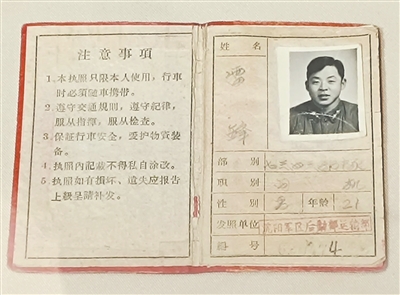 注意事項
1.本执照只限本人使用,行車
时必須隨車携带。
2.遵守交通規則,遵守紀律,
服从指揮,服从檢查。
3.保証行車安全,爱护物資装
备。
4.执照內記載不得私自涂改。
5.执照如有損坏、遺失应报告
上級呈請补发。
姓 名
雷
鋒
部 別
职 別
性 別 年龄 21
发照单位 沈阳軍区后勤部运輸部
号 4